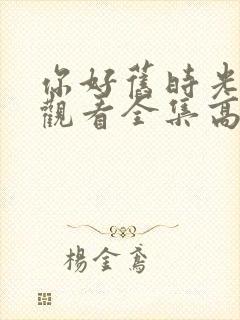 你好舊時光
觀看全集高
楊金鳶